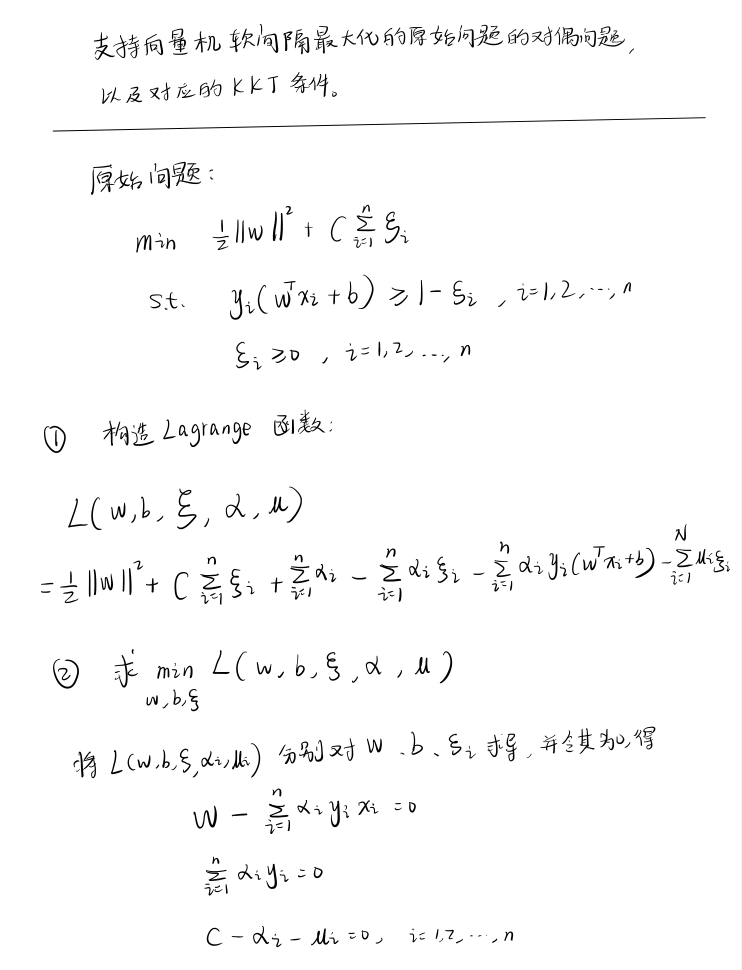 支持向量机软间隔最大化的原始问题的对偶问题,
以及对应的KKT条件。
原始问题:
min ½‖w‖² + C∑ᵢ₌₁ⁿ ξᵢ
s.t. yᵢ(wᵀxᵢ+b) ≥ 1-ξᵢ , i=1,2,...,n
ξᵢ ≥ 0 , i=1,2,...,n
① 构造Lagrange函数:
L(w,b,ξ,α,μ)
= ½‖w‖² + C∑ᵢ₌₁ⁿ ξᵢ + ∑ᵢ₌₁ⁿ αᵢ - ∑ᵢ₌₁ⁿ αᵢξᵢ - ∑ᵢ₌₁ⁿ αᵢyᵢ(wᵀxᵢ+b) - ∑ᵢ₌₁ᴺ μᵢξᵢ
② 求 min L(w,b,ξ,α,μ)
w,b,ξ
将L(w,b,ξ,αᵢ,μᵢ)分别对w、b、ξᵢ求导,并令其为0,得
w - ∑ᵢ₌₁ⁿ αᵢyᵢxᵢ = 0
∑ᵢ₌₁ⁿ αᵢyᵢ = 0
C - αᵢ - μᵢ = 0, i=1,2,...,n